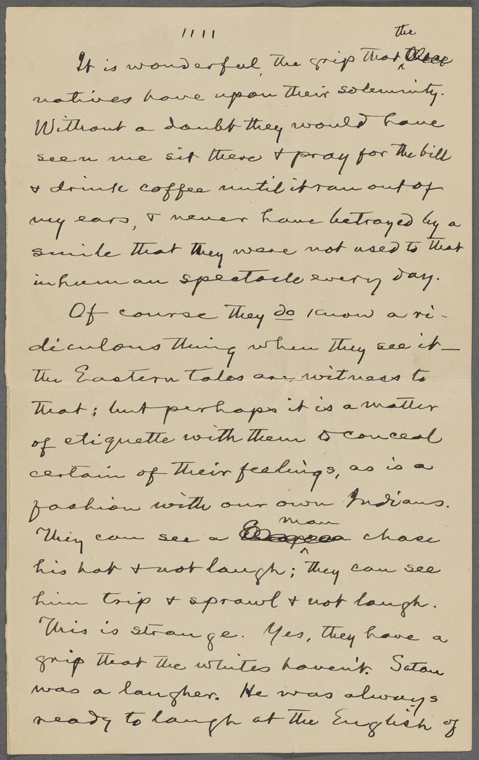 1111
It is wonderful, the grip that the
natives have upon their solemnity.
Without a doubt they would have
seen me sit there & pray for the bill
& drink coffee until it ran out of
my ears, & never have betrayed by a
smile that they were not used to that
inhuman spectacle every day.
Of course they do know a ri-
diculous thing when they see it—
the Eastern tales are witness to
that; but perhaps it is a matter
of etiquette with them to conceal
certain of their feelings, as is a
fashion with our own Indians.
They can see a man chase
his hat & not laugh; they can see
him trip & sprawl & not laugh.
This is strange. Yes, they have a
grip that the whites haven't. Satan
was a laugher. He was always
ready to laugh at the English of